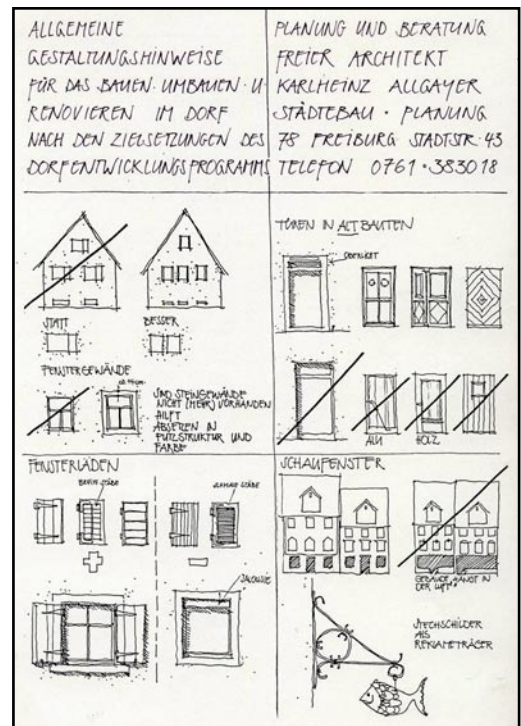 ALLGEMEINE
GESTALTUNGSHINWEISE
FÜR DAS BAUEN · UMBAUEN · U·
RENOVIEREN IM DORF
NACH DEN ZIELSETZUNGEN DES
DORFENTWICKLUNGSPROGRAMMS
PLANUNG UND BERATUNG
FREIER ARCHITEKT
KARLHEINZ ALLGAYER
STÄDTEBAU · PLANUNG
78 FREIBURG STADTSTR· 43
TELEFON 0761·383018
STATT
BESSER
FENSTERGEWÄNDE
SIND STEINGEWÄNDE
NICHT (MEHR) VORHANDEN
HILFT
ABSETZEN IN
PUTZSTRUKTUR UND
FARBE
TÜREN IN ALTBAUTEN
OBERLICHT
ALU
HOLZ
FENSTERLÄDEN
BREITE STÄBE
SCHMALE STÄBE
JALOUSIE
SCHAUFENSTER
GEBÄUDE "HÄNGT IN
DER LUFT"
STECHSCHILDER
ALS
REKLAMETRÄGER